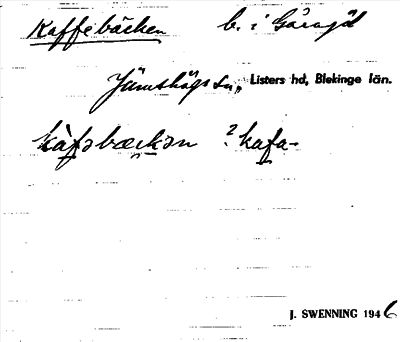 Kaffebäcken b. i Gåragöl
Jämshögs sn, Listers hd, Blekinge län.
kàfəbæckən ? kafa-
J. SWENNING 1946